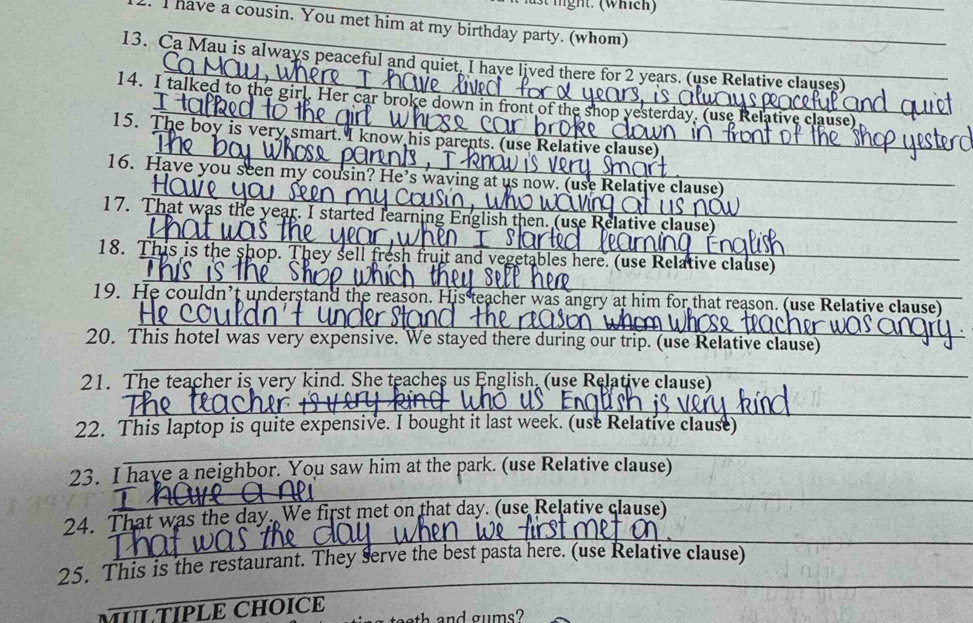 last night. (which)
12. I have a cousin. You met him at my birthday party. (whom)
13. Ca Mau is always peaceful and quiet. I have lived there for 2 years. (use Relative clauses)
Ca Mau, where I have lived for 2 years, is always peaceful and quiet
14. I talked to the girl. Her car broke down in front of the shop yesterday. (use Relative clause)
I talked to the girl whose car broke down in front of the shop yesterd
15. The boy is very smart. I know his parents. (use Relative clause)
The boy whose parents, I know is very smart.
16. Have you seen my cousin? He's waving at us now. (use Relative clause)
Have you seen my cousin, who waving at us now
17. That was the year. I started learning English then. (use Relative clause)
that was the year, when I started learning English
18. This is the shop. They sell fresh fruit and vegetables here. (use Relative clause)
This is the shop which they sell here
19. He couldn't understand the reason. His teacher was angry at him for that reason. (use Relative clause)
He couldn't understand the reason whom whose teacher was angry.
20. This hotel was very expensive. We stayed there during our trip. (use Relative clause)
21. The teacher is very kind. She teaches us English. (use Relative clause)
The teacher is very kind who us English is very kind
22. This laptop is quite expensive. I bought it last week. (use Relative clause)
23. I have a neighbor. You saw him at the park. (use Relative clause)
I have a nei
24. That was the day. We first met on that day. (use Relative clause)
That was the day when we first met on.
25. This is the restaurant. They serve the best pasta here. (use Relative clause)
MULTIPLE CHOICE
teeth and gums?